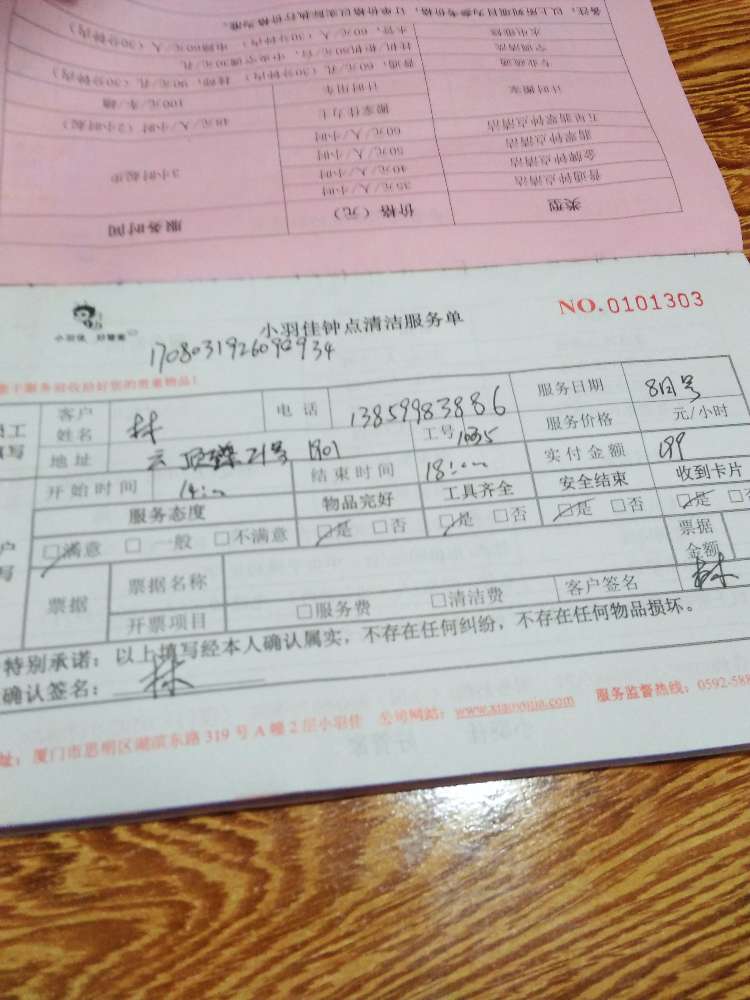 备注：以上所列项目为参考价格，订单价格以实际执行价格为准。
水电维修 水管，60元/人（30分钟内） 电路60元/人（30分钟内）
空调清洗 挂机、柜机80元/台，中央空调30元/孔
专业疏通 普通，60元/孔（30分钟内）
计时搬家 计时用车 100元/车/趟
搬家佳力士 48元/人/小时（2小时起）
五星翡翠钟点清洁 60元/人/小时
翡翠钟点清洁 50元/人/小时
金牌钟点清洁 40元/人/小时
普通钟点清洁 35元/人/小时 3小时起步
类型 价格（元） 服务时间
小羽佳 好管家
小羽佳钟点清洁服务单
NO.0101303
1708031926090934
客户姓名 林 电话 13859983886 服务日期
地址 21号 1901 工号 1035 服务价格 元/小时
开始时间 14:00 结束时间 18:00 实付金额 199
服务态度 物品完好 工具齐全 安全结束 收到卡片
□满意 □一般 □不满意 □是 □否 □是 □否 □是 □否 □是
票据 票据名称 票据金额
开票项目 □服务费 □清洁费 客户签名 林
特别承诺：以上填写经本人确认属实，不存在任何纠纷，不存在任何物品损坏。
确认签名： 林
址：厦门市思明区湖滨东路319号A幢2层小羽佳 公司网站：www.xiaoyujia.com 服务监督热线：0592-588